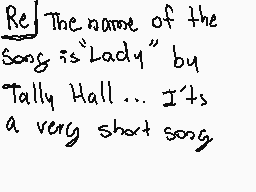 Re| The name of the
song is "Lady" by
Tally Hall... I'ts
a very short song